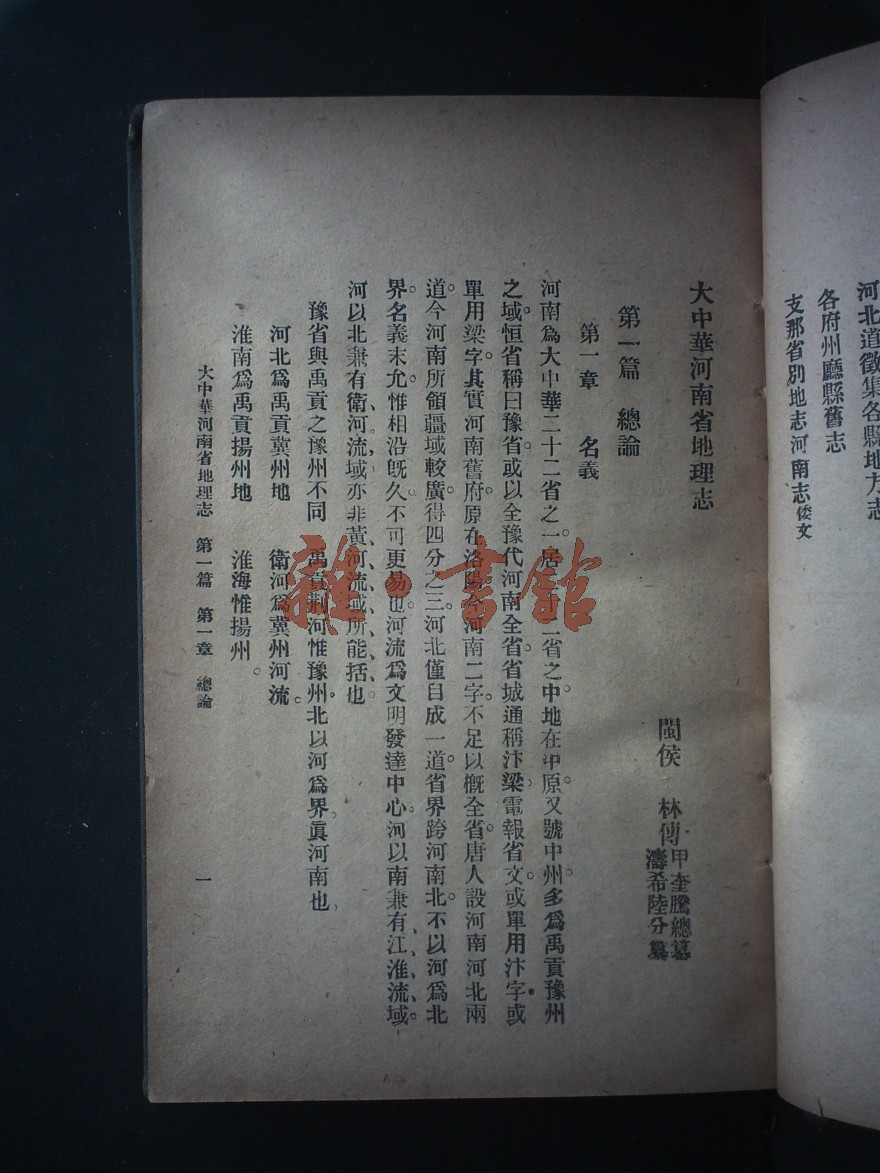 河北道徵集各縣地方志
各府州廳縣舊志
支那省別地志河南志倭文
大中華河南省地理志
閩侯 林傳甲奎騰總纂
濤希陸分纂
第一篇 總論
第一章 名義
河南爲大中華二十二省之一。居二十二省之中。地在中原。又號中州。多爲禹貢豫州
之域。恒省稱曰豫省。或以全豫代河南全省。省城通稱汴梁。電報省文。或單用汴字。或
單用梁字。其實河南舊府。原在洛陽。今河南二字。不足以槪全省。唐人設河南河北兩
道。今河南所領疆域較廣。得四分之三。河北僅自成一道。省界跨河南北。不以河爲北
界。名義未允。惟相沿旣久。不可更易也。河流爲文明發達中心。河以南兼有江、淮、流、域。
河以北兼有衛、河、流域。亦非黃、河、流、域、所、能、括、也、
豫省與禹貢之豫州不同 禹貢荆河惟豫州。北以河爲界。眞河南也。
河北爲禹貢冀州地 衛河爲冀州河流。
淮南爲禹貢揚州地 淮海惟揚州。
大中華河南省地理志 第一篇 第一章 總論
一
雜·書館